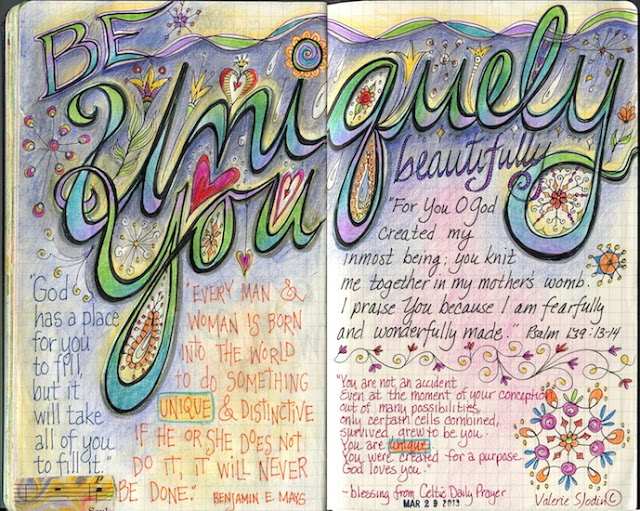 BE
Uniquely
You
beautifully
"God
has a place
for you
to fill,
but it
will take
all of you
to fill it."
"EVERY MAN &
WOMAN IS BORN
INTO THE WORLD
to do SOMETHING
UNIQUE & DISTINCTIVE
IF HE OR SHE DOES NOT
DO IT, IT WILL NEVER
BE DONE."
BENJAMIN E. MAYS
"For You O God
created my
inmost being; you knit
me together in my mother's womb.
I praise You because I am fearfully
and wonderfully made." Psalm 139:13-14
"You are not an accident
Even at the moment of your conception
out of many possibilities,
only certain cells combined,
survived, grew to be you.
You are unique.
You were created for a purpose.
God loves you."
~ blessing from Celtic Daily Prayer
MAR 29 2013
Valerie Sjodin ©